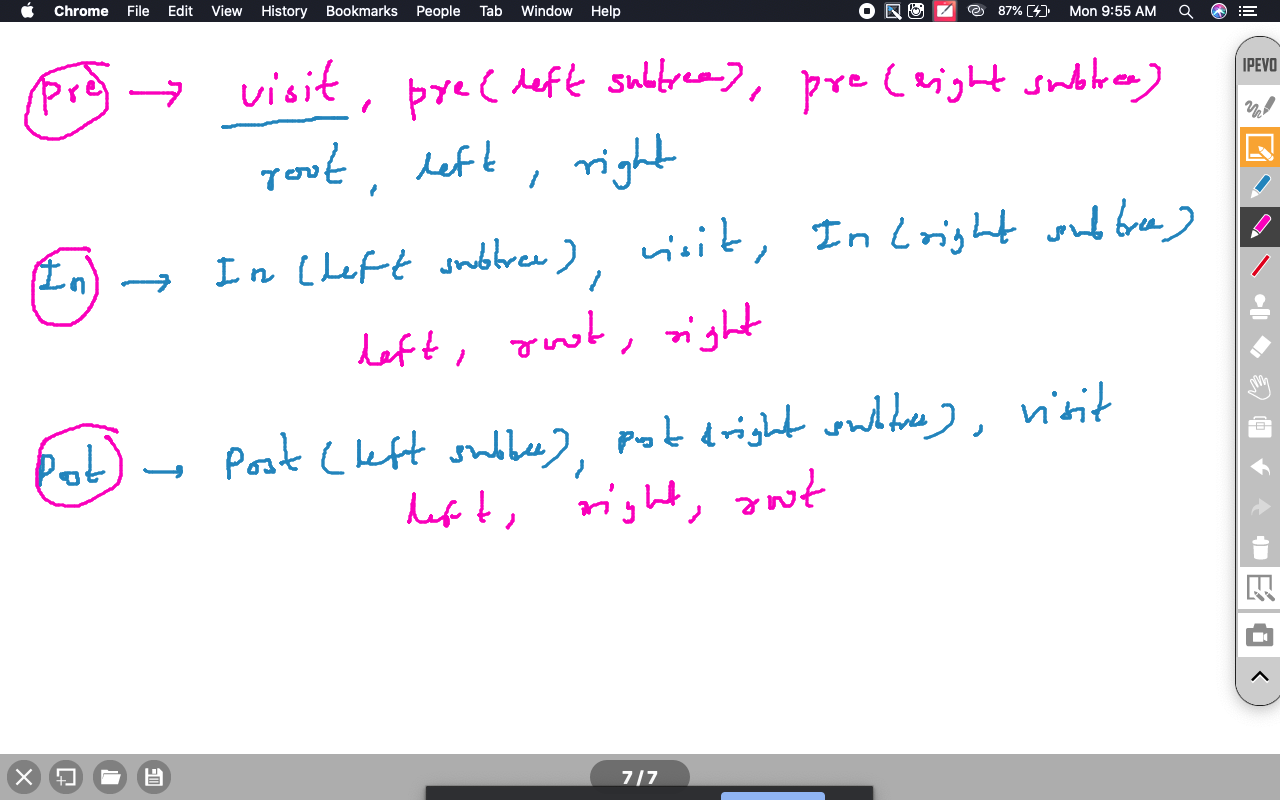 Chrome File Edit View History Bookmarks People Tab Window Help 87% Mon 9:55 AM
IPEVO
Pre → visit, pre(left subtree), pre(right subtree)
root, left, right
In → In (left subtree), visit, In (right subtree)
left, root, right
Post → Post (left subtree), post (right subtree), visit
left, right, root
7/7